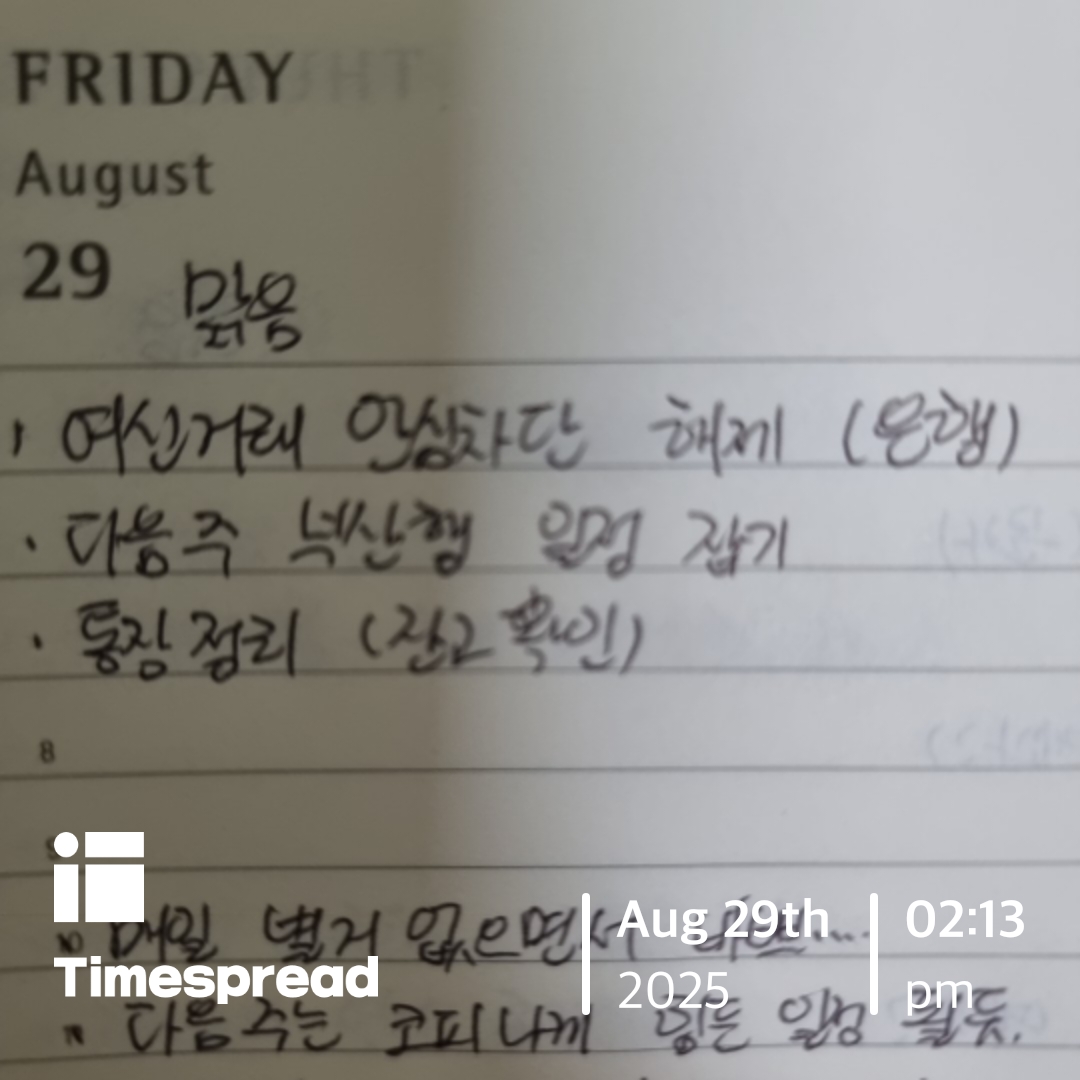 FRIDAY
August
29 맑음
여신거래 안심차단 해제 (은행)
· 다음주 넉산행 일정 잡기
· 통장정리 (잔고확인)
8
10 매일 별거 없으면서
11 다음주는 코피나게 힘든 일정 될듯.
Timespread
Aug 29th
2025
02:13
pm